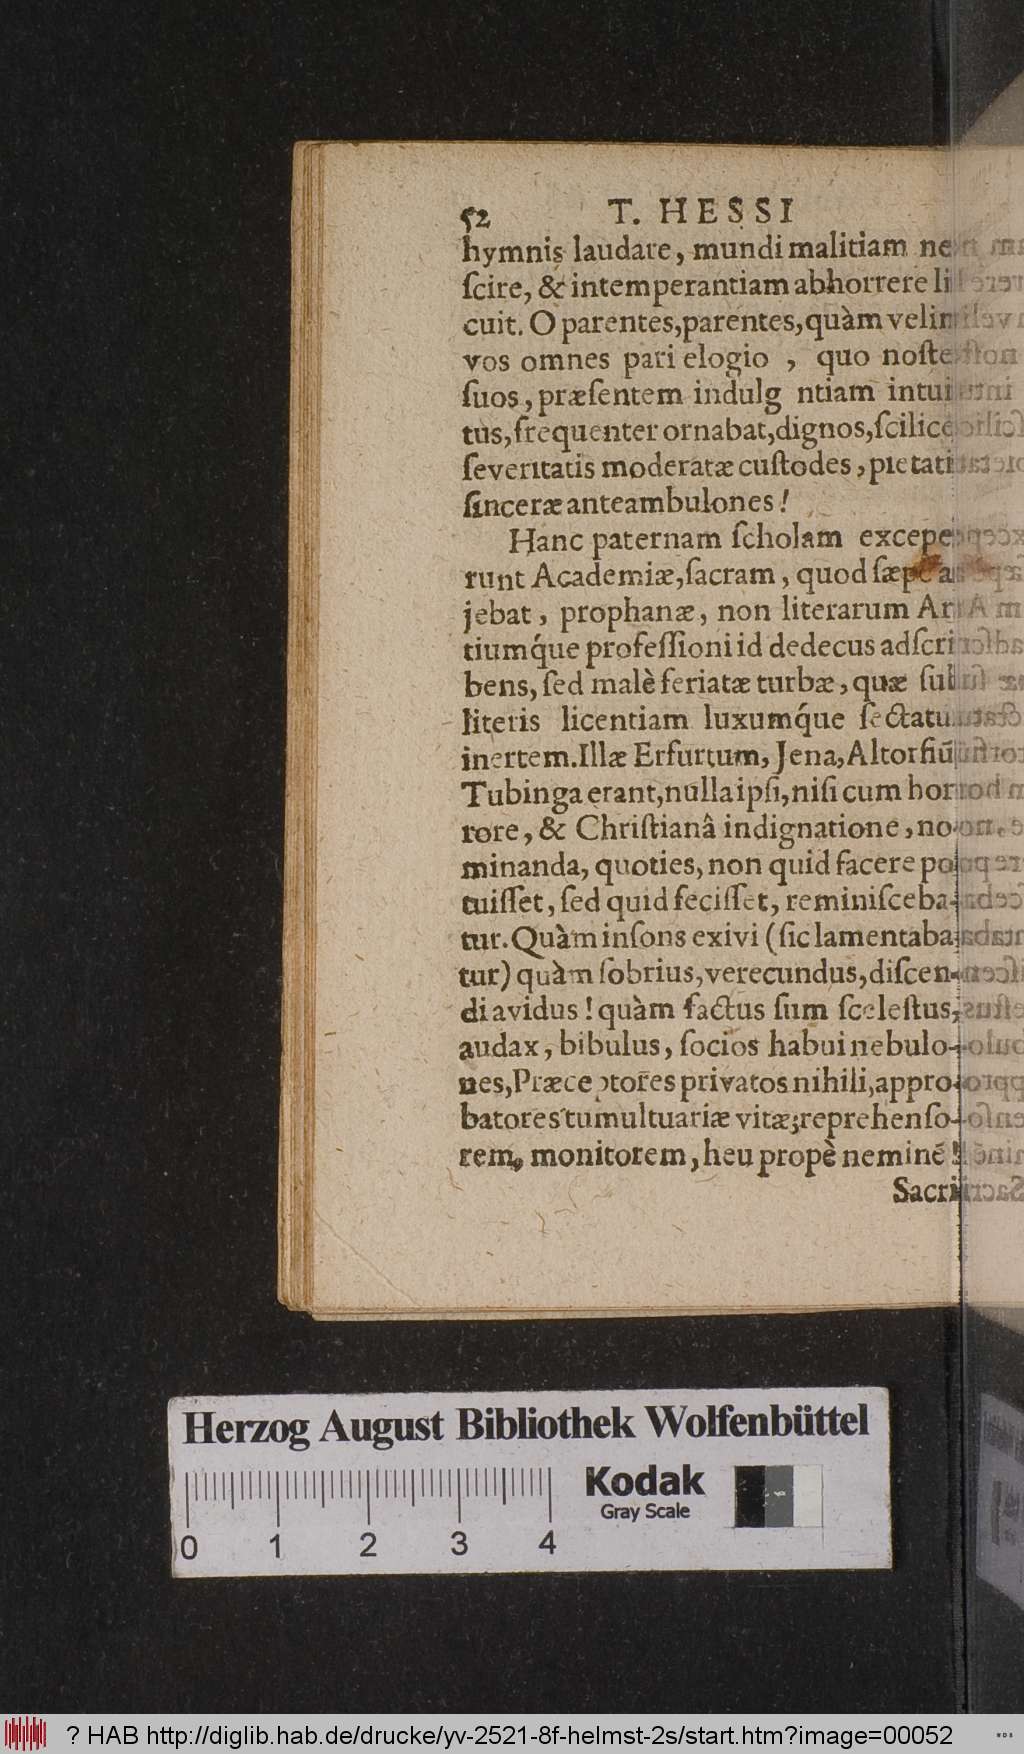 52 T. HESSI
hymnis laudare, mundi malitiam ne
ſcire, & intemperantiam abhorrere li
cuit. O parentes, parentes, quàm velim
vos omnes pari elogio , quo noſte
ſuos, præſentem indulg ntiam intui
tus, frequenter ornabat, dignos, ſcilice
ſeveritatis moderatæ cuſtodes, pietati
ſinceræ anteambulones!
Hanc paternam ſcholam excepe
runt Academiæ, ſacram, quod ſæpe a
jebat, prophanæ, non literarum Ar
tiumq́ue profeſſioni id dedecus adſcri
bens, ſed malè feriatæ turbæ, quæ ſub
literis licentiam luxumq́ue ſectatu
inertem. Illæ Erfurtum, Jena, Altorfiũ
Tubinga erant, nulla ipſi, niſi cum hor
rore, & Chriſtianâ indignatione, no
minanda, quoties, non quid facere po
tuiſſet, ſed quid feciſſet, reminiſceba-
tur. Quàm inſons exivi (ſic lamentaba
tur) quàm ſobrius, verecundus, diſcen-
di avidus! quàm factus ſum ſceleſtus,
audax, bibulus, ſocios habui nebulo-
nes, Præceptores privatos nihili, appro-
batores tumultuariæ vitæ; reprehenſo-
rem, monitorem, heu propè neminẽ!
Sacri
Herzog August Bibliothek Wolfenbüttel
Kodak
Gray Scale
0 1 2 3 4
? HAB http://diglib.hab.de/drucke/yv-2521-8f-helmst-2s/start.htm?image=00052